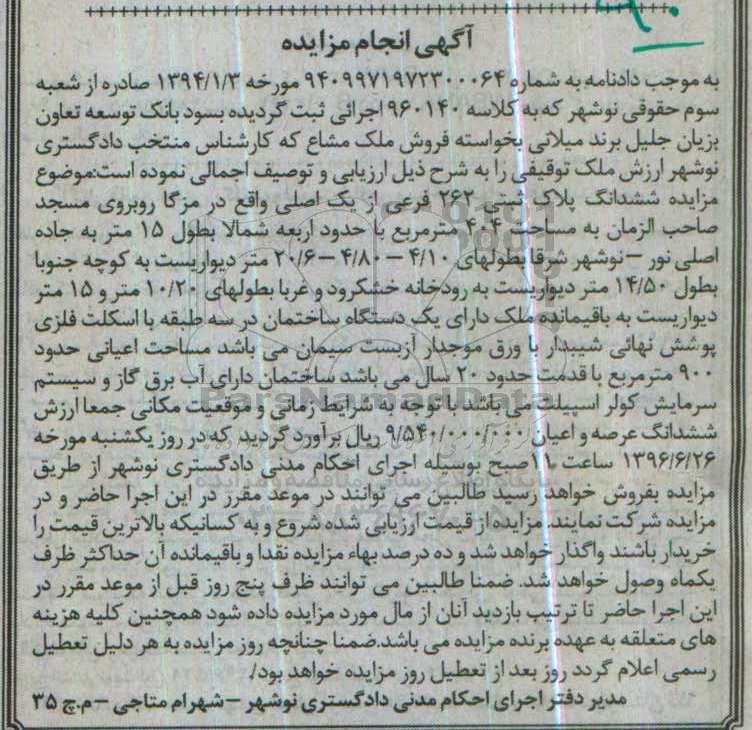 آگهی انجام مزایده
به موجب دادنامه به شماره ۹۴۰۹۹۷۱۹۷۲۳۰۰۰۶۴ مورخه ۱۳۹۴/۱/۳ صادره از شعبه
سوم حقوقی نوشهر که به کلاسه ۹۶۰۱۴۰ اجرائی ثبت گردیده بسود بانک توسعه تعاون
بزیان جلیل برند میلانی بخواسته فروش ملک مشاع که کارشناس منتخب دادگستری
نوشهر ارزش ملک توقیفی را به شرح ذیل ارزیابی و توصیف اجمالی نموده است:موضوع
مزایده ششدانگ پلاک ثبتی ۲۶۲ فرعی از یک اصلی واقع در مزگا روبروی مسجد
صاحب الزمان به مساحت ۴۰۴ مترمربع با حدود اربعه شمالا بطول ۱۵ متر به جاده
اصلی نور – نوشهر شرقا بطولهای ۴/۱۰ – ۴/۸۰ – ۲۰/۶ متر دیواریست به کوچه جنوبا
بطول ۱۴/۵۰ متر دیواریست به رودخانه خشکرود و غربا بطولهای ۱۰/۲۰ متر و ۱۵ متر
دیواریست به باقیمانده ملک دارای یک دستگاه ساختمان در سه طبقه با اسکلت فلزی
پوشش نهائی شیبدار با ورق موجدار آزبست سیمان می باشد مساحت اعیانی حدود
۹۰۰ مترمربع با قدمت حدود ۲۰ سال می باشد ساختمان دارای آب برق گاز و سیستم
سرمایش کولر اسپیلت می باشد با توجه به شرایط زمانی و موقعیت مکانی جمعا ارزش
ششدانگ عرصه و اعیان ۹/۵۴۰/۰۰۰/۰۰۰ ریال برآورد گردید که در روز یکشنبه مورخه
۱۳۹۶/۶/۲۶ ساعت ۱۱صبح بوسیله اجرای احکام مدنی دادگستری نوشهر از طریق
مزایده بفروش خواهد رسید طالبین می توانند در موعد مقرر در این اجرا حاضر و در
مزایده شرکت نمایند. مزایده از قیمت ارزیابی شده شروع و به کسانیکه بالاترین قیمت را
خریدار باشند واگذار خواهد شد و ده درصد بهاء مزایده نقدا و باقیمانده آن حداکثر ظرف
یکماه وصول خواهد شد. ضمنا طالبین می توانند ظرف پنج روز قبل از موعد مقرر در
این اجرا حاضر تا ترتیب بازدید آنان از مال مورد مزایده داده شود همچنین کلیه هزینه
های متعلقه به عهده برنده مزایده می باشد.ضمنا چنانچه روز مزایده به هر دلیل تعطیل
رسمی اعلام گردد روز بعد از تعطیل روز مزایده خواهد بود/.
مدیر دفتر اجرای احکام مدنی دادگستری نوشهر – شهرام متاجی – م.چ ۳۵
ParsNamadData